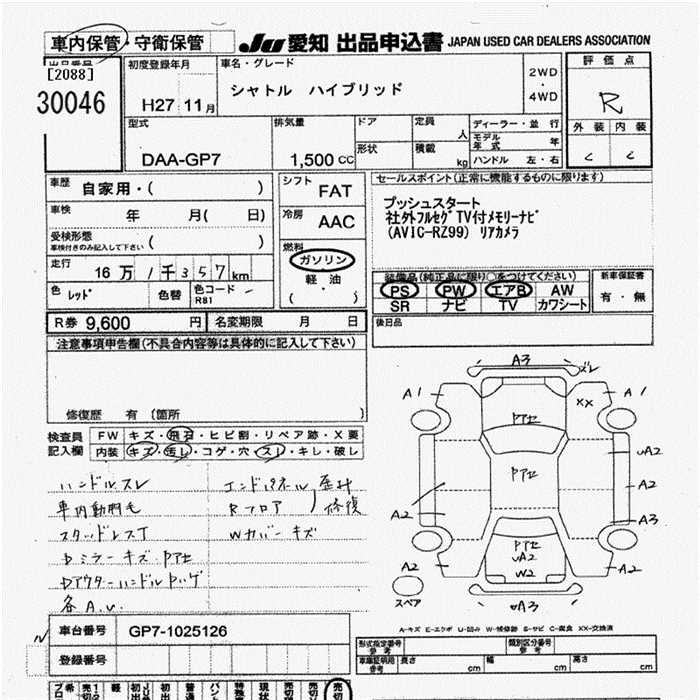 車内保管・守衛保管 JU 愛知 出品申込書 JAPAN USED CAR DEALERS ASSOCIATION
出品番号
[2088]
30046
初度登録年月
H27 11月
車名・グレード
シャトル ハイブリッド
2WD
・
4WD
評価点
R
外装 内装
C C
型式
DAA-GP7
排気量
1,500 CC
ドア
形状
定員
人
積載
kg
ディーラー・並行
モデル年式 年
ハンドル 左・右
車歴 自家用・( )
車検 年 月( 日)
受検形態
車検付きのみ記入して下さい ( )
走行 16万1千357km
色 レッド 色替 色コード R81
シフト FAT
冷房 AAC
燃料
ガソリン
軽・油
( )
セールスポイント(正常に機能するものに限ります)
プッシュスタート
社外フルセグTV付メモリーナビ
(AVIC-RZ99) リアカメラ
装備品(純正品に限り○をつけてください)
PS PW エアB AW
SR ナビ TV カワシート
新車保証書
有・無
R券 9,600 円 名変期限 月 日
後日品
注意事項申告欄(不具合内容等は具体的に記入して下さい)
修復歴 有 〔箇所 〕
検査員
記入欄
FW キズ・飛石・ヒビ割・リペア跡・X要
内装 キズ・汚レ・コゲ・穴・スレ・キレ・破レ
ハンドルスレ
車内動物毛
スタッドレスT
Dミラーキズ Pアセ
Dアウターハンドル
各A.U.
エンドパネル 歪計
Rフロア 修復
Wカバーキズ
A3 ズレ
A1 A1
XX
Pアセ
Pアセ
UA2
A2 A2
A3
Pアセ
UA2
W2
A2 A2
UA3
スペア
A-キズ E-エクボ U-凹み W-補修跡 S-サビ C-腐食 XX-交換済
車台番号 GP7-1025126
登録番号
形式指定番号
参考
類別区分番号
参考
車庫証明用
参考
長さ cm 幅 cm 高さ cm